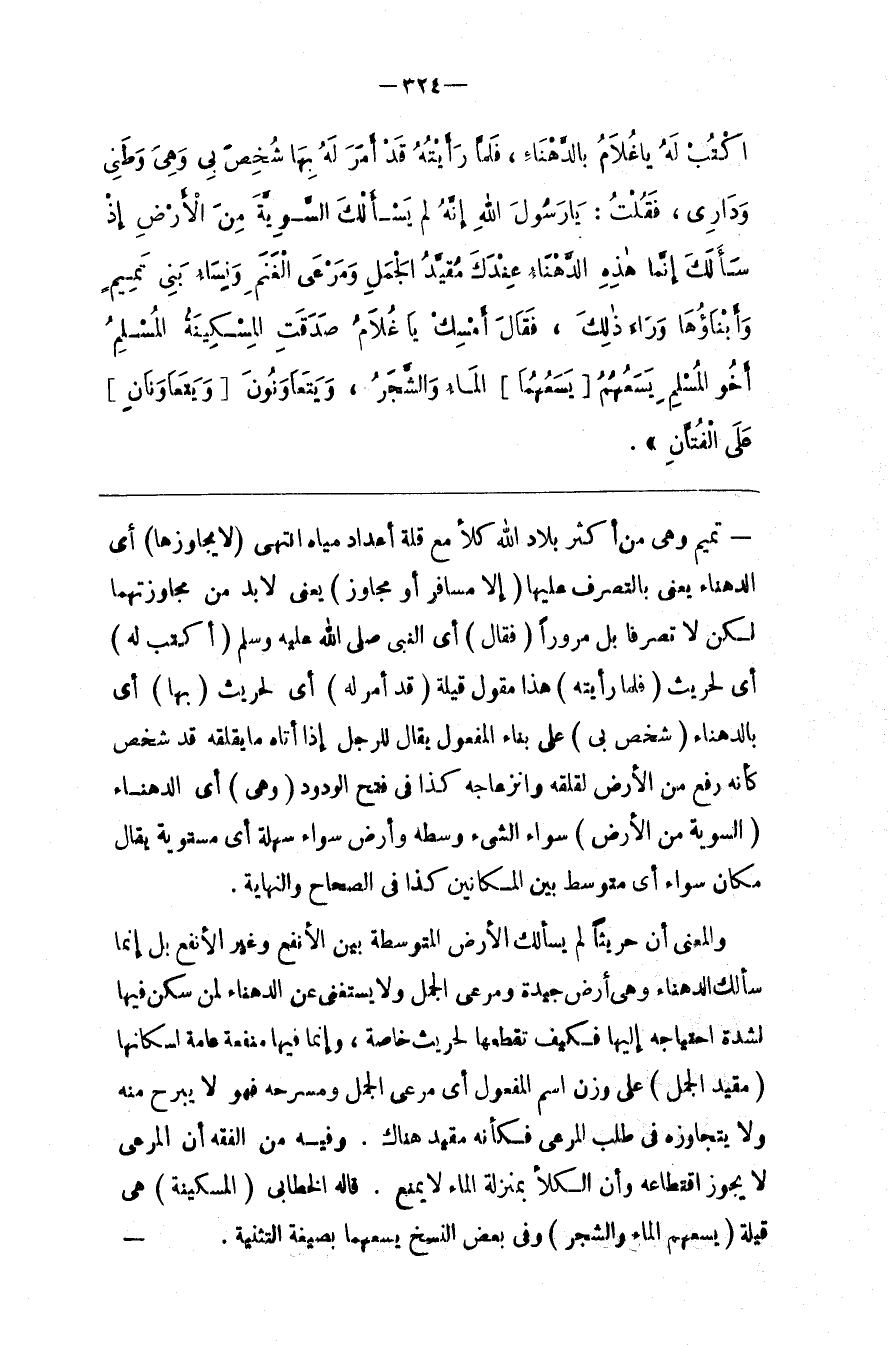 — ٣٢٤ —
اكْتُبْ لَهُ يَاغُلَامُ بِالدَّهْنَاءِ ، فَلَمَّا رَأَيْتُهُ قَدْ أَمَرَ لَهُ بِهَا شُخِصَ بِي وَهِيَ وَطَنِي
وَدَارِي ، فَقُلْتُ : يَارَسُولَ اللهِ إِنَّهُ لَمْ يَسْـأَلْكَ السَّـوِيَّةَ مِنَ الْأَرْضِ إِذْ
سَأَلَكَ إِنَّمَا هٰذِهِ الدَّهْنَاءُ عِنْدَكَ مُقَيَّدُ الْجَمَلِ وَمَرْعَى الْغَنَمِ وَنِسَاءُ بَنِي تَمِيمٍ
وَأَبْنَاؤُهَا وَرَاءَ ذٰلِكَ ، فَقَالَ أَمْسِكْ يَا غُلَامُ صَدَقَتِ الْمِسْكِينَةُ الْمُسْلِمُ
أَخُو الْمُسْلِمِ يَسَعُهُمُ [ يَسَعُهُمَا ] الْمَاءُ وَالشَّجَرُ ، وَيَتَعَاوَنُونَ [ وَيَتَعَاوَنَانِ ]
عَلَى الْفُتَّانِ » .
— تميم وهى من أكثر بلاد الله كلأ مع قلة أعداد مياه انتهى (لايجاوزها) أى
الدهناء يعنى بالتصرف عليها ( إلا مسافر أو مجاوز ) يعنى لابد من مجاوزتهما
لـكن لا تصرفا بل مروراً ( فقال ) أى النبى صلى الله عليه وسلم ( أكتب له )
أى لحريث ( فلما رأيته ) هذا مقول قيلة ( قد أمر له ) أى لحريث ( بها ) أى
بالدهناء ( شخص بى ) على بناء المفعول يقال للرجل إذا أتاه مايقلقه قد شخص
كأنه رفع من الأرض لقلقه وانزعاجه كذا فى فتح الودود ( وهى ) أى الدهنـاء
( السوية من الأرض ) سواء الشىء وسطه وأرض سواء سهلة أى مستوية يقال
مكان سواء أى متوسط بين المـكانين كذا فى الصحاح والنهاية .
والمعنى أن حريثاً لم يسألك الأرض المتوسطة بين الأنفع وغير الأنفع بل إنما
سألك الدهناء وهى أرض جيدة ومرعى الجمل ولايستغنى عن الدهناء لمن سكن فيها
لشدة احتياجه إليها فـكيف تقطعها لحريث خاصة ، وإنما فيها منفعة عامة لسكانها
( مقيد الجمل ) على وزن اسم المفعول أى مرعى الجمل ومسرحه فهو لا يبرح منه
ولا يتجاوزه فى طلب المرعى فـكأنه مقيد هناك . وفيـه من الفقه أن المرعى
لا يجوز اقتطاعه وأن الـكلأ بمنزلة الماء لايمنع . قاله الخطابى ( المسكينة ) هى
قيلة ( يسعهم الماء والشجر ) وفى بعض النسخ يسعهما بصيغة التثنية . —